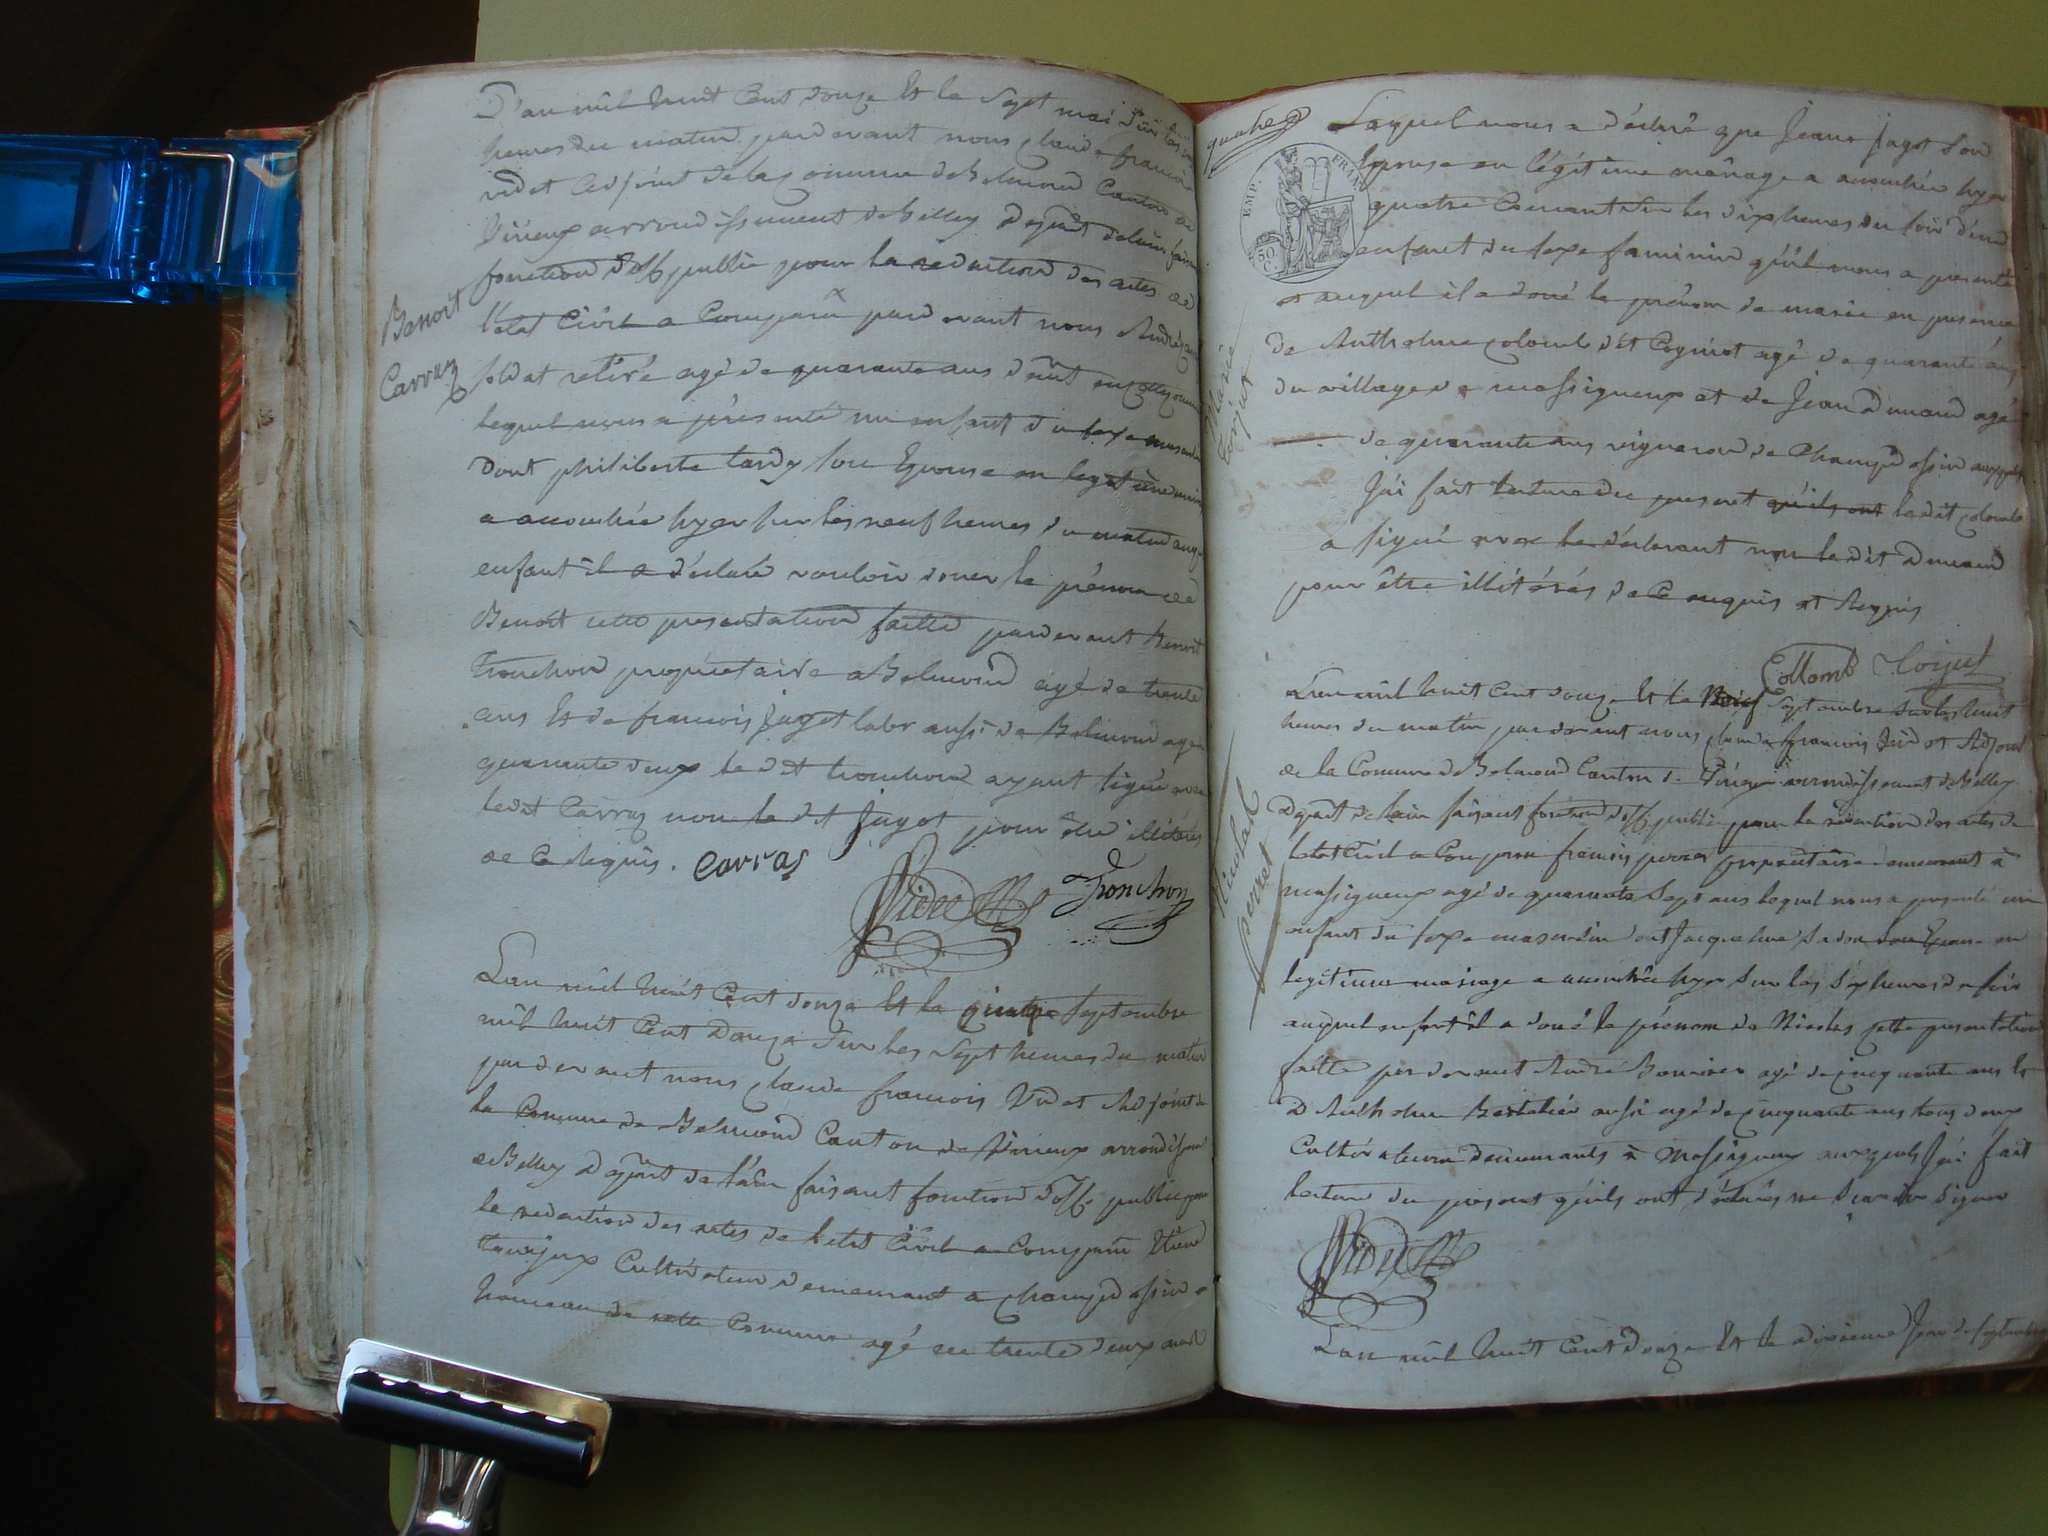 Benoit
Carraz
L'an mil huit Cent douze Et le Sept mai Sur les
heures du matin pardevant nous claude françois
videt adjoint de la Commune de Belmond Canton de
Virieux arrondissement de Belley Depart de lain faisan
fonction d'off publie pour la redaction des actes de
l'etat Civil a Comparu pardevant nous André
soldat retiré agé de quarante ans
lequel nous a présenté un enfant du sexe masculin
Dont philiberte tardy son Epouse en legitime
a acouchée hyer sur les neuf heures du matin auq
enfant il a déclaré vouloir doner le prénom de
Benoit cette presentation faitte pardevant Benoit
tronchon propriétaire a Belmond agé de trente
ans Et de francois Jagot labr aussi de Belmond agé
quarante deux le dit tronchon ayant signé avec
ledit Carraz non le dit Jagot pour être illitérés
de Ce Requis. Carraz
Videt Tronchon
L'an mil huit Cent douze Et le Septembre
mil huit Cent Douze Sur les Sept heures du matin
pardevant nous claude francois Videt Adjoint de
la Comune de Belmond Canton de Virieux arrondism
de Belley Depart de l'ain faisant fonction d'off publie pour
la redaction des actes de l'etat Civil a Comparu
Cultivateur demeurant a champd ossin
hameau de cette Comune agé de trente deux
quatre
EMP. FRAN.
50 C.
Marie
Coijut
Lequel nous a déclaré que Jeane Jagot Son
Epouse en légitime mariage a acouchée hyer
quatre Courant Sur les dix heures du soir d'un
enfant du sexe faminin qu'il nous a presenté
et auquel il a doné le prénom de marie en presence
de Anthelme colomb dit Cogniot agé de quarante
du village de massigneux et de Jean Dumand agé
de quarante ans vigneron de Champd ossin auxquels
J'ai fait lecture du present qu'ils ont ledit colomb
a signé avec le déclarant non le dit Dumand
pour être illitérés de Ce enquis et Requis
Collomb Coijut
Nicolas
perret
L'an mil huit Cent douze Et le Neuf Septembre Sur les huit
heures du matin pardevant nous claude francois Vid et Adjoint
de la Comune de Belmond Canton de Virieux arrondissement de Belley
Depart de lain faisant fonction d'off publie pour la redaction des actes de
letat Civil a Comparu francois perret propriétaire demeurant à
massigneux agé de quarante Sept ans lequel nous a presenté un
enfant du sexe masculin dont Jacqueline son Epouse en
legitime mariage a acouchée hyer Sur les Six heures du soir
auquel enfant il a doné le prénom de Nicolas cette presentation
faitte pardevant André agé de cinquante ans Et
D Anthelme aussi agé de cinquante ans tous deux
Cultivateurs demeurants à Massigneux auxquels J'ai fait
lecture du present qu'ils ont déclarés ne Savoir signer
Videt
L'an mil huit Cent douze Et le dixieme Jour de septembre